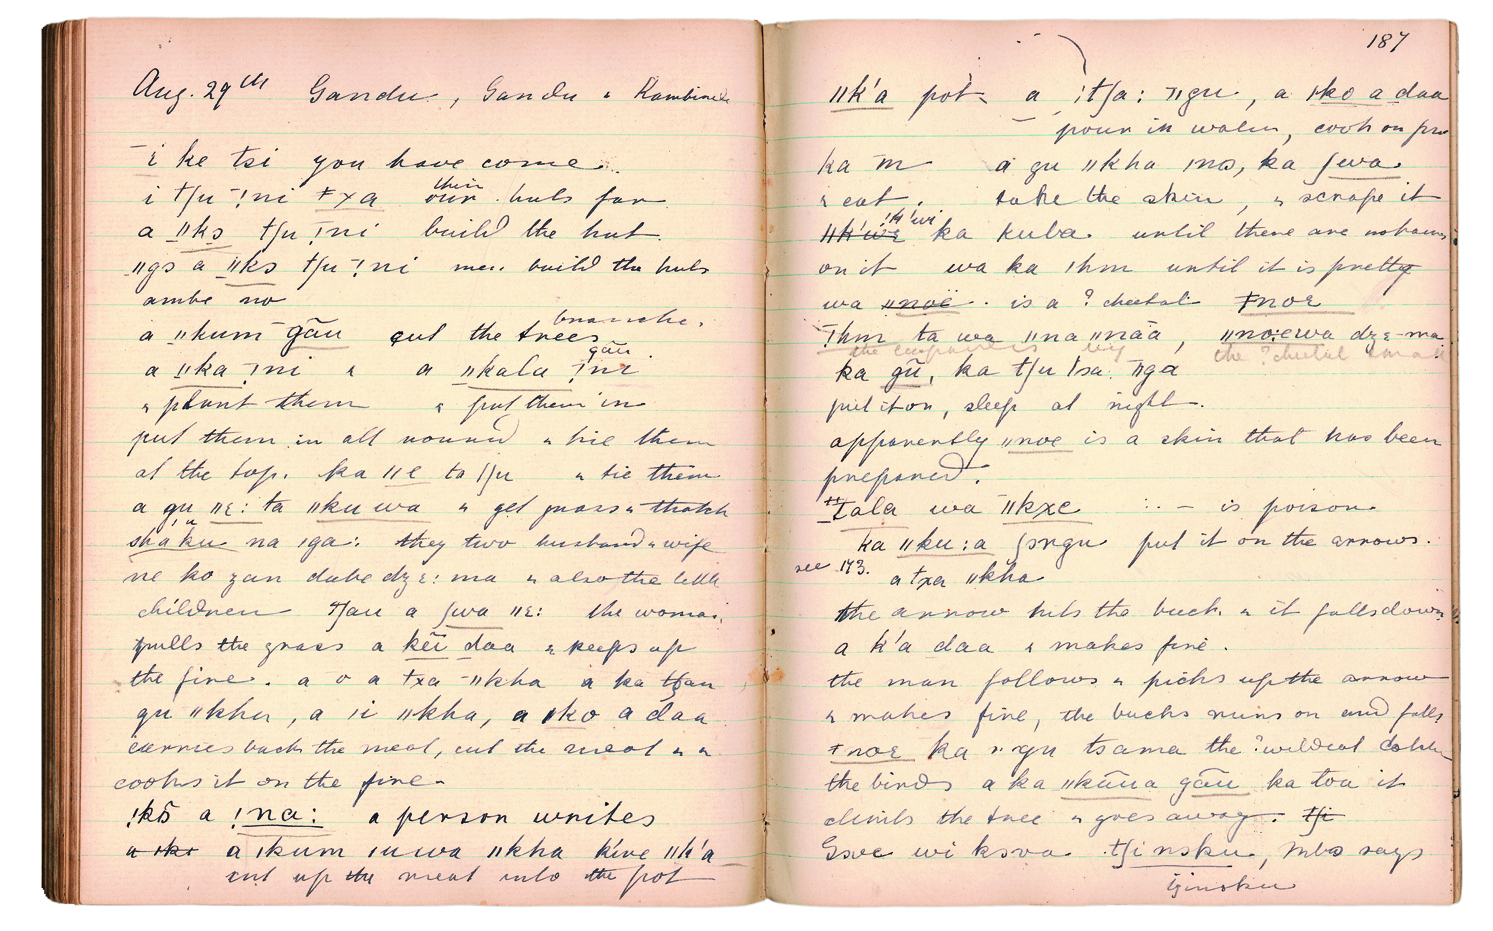 Aug. 29th Gandu, Gandu & Kambinda
ĩ ke tsi you have come.
i tʃu ǃni ǂxa their our huts far
a ǁkɔ tʃu ǃni build the hut.
ǁgɔ a ǁkɔ tʃu ǃni men build the huts
ambe no
a ǁkum gãu cut the trees branches.
a ǁka ǃni & a ǁkala ǃni gãu.
& plant them & put them in
put them in all round & tie them
at the top. ka ǁe ta tʃu & tie them
a gu ǁɛ: ta ǁku wa & get grass & thatch
shaku na ǀga: they two husband & wife
ne ko ʒan dabe dzɛ: ma & also the little
children tʃau a ʃwa ǁɛ: the woman
pulls the grass a kẽi daa & keeps up
the fire. a o a txa ǁkha a ka tʃan
gu ǁkha, a ǀi ǁkha, a ǀko a daa
carries back the meat, cut the meat & &
cooks it on the fire.
ǃkɔ̃ a ǃna: a person writes
a ǀko a ǀkum ǀuwa ǁkha k'ive ǁk'a
cut up the meat into the pot
187
ǁk'a pot a ǀtʃa: ǁgu, a ǀko a daa
pour in water, cook on fire
ka m̄ a gu ǁkha ǀnɔ, ka ʃwa
& eat. take the skin, & scrape it
ka kuba until there are no hairs
on it wa ka ǀhm until it is pretty
wa ǁnoë. is a ? cheetal ǂnoɛ
ǀhm ta wa ǁna ǁnãa, ǁno:ewa dzɛ-ma
the ? cheetal small
ka gũ, ka tʃu ǀsa ǁga
put it on, sleep at night.
apparently ǁnoe is a skin that has been
prepared.
ǂala wa ǁkxe : . – is poison
ka ǁku:a ʃɔŋgu put it on the arrows.
see 173. a txa ǁkha
the arrow hits the buck & it falls down
a k'a daa & makes fire.
the man follows & picks up the arrow
& makes fire, the bucks runs on and falls
ǂnoɛ ka ǁxgu tsama the ? wildcat catches
the birds a ka ǁkãua gãu ka toa it
climbs the tree & goes away. tʃi
Gsve wi ksva tʃinsku, Mbo says
tjinsku